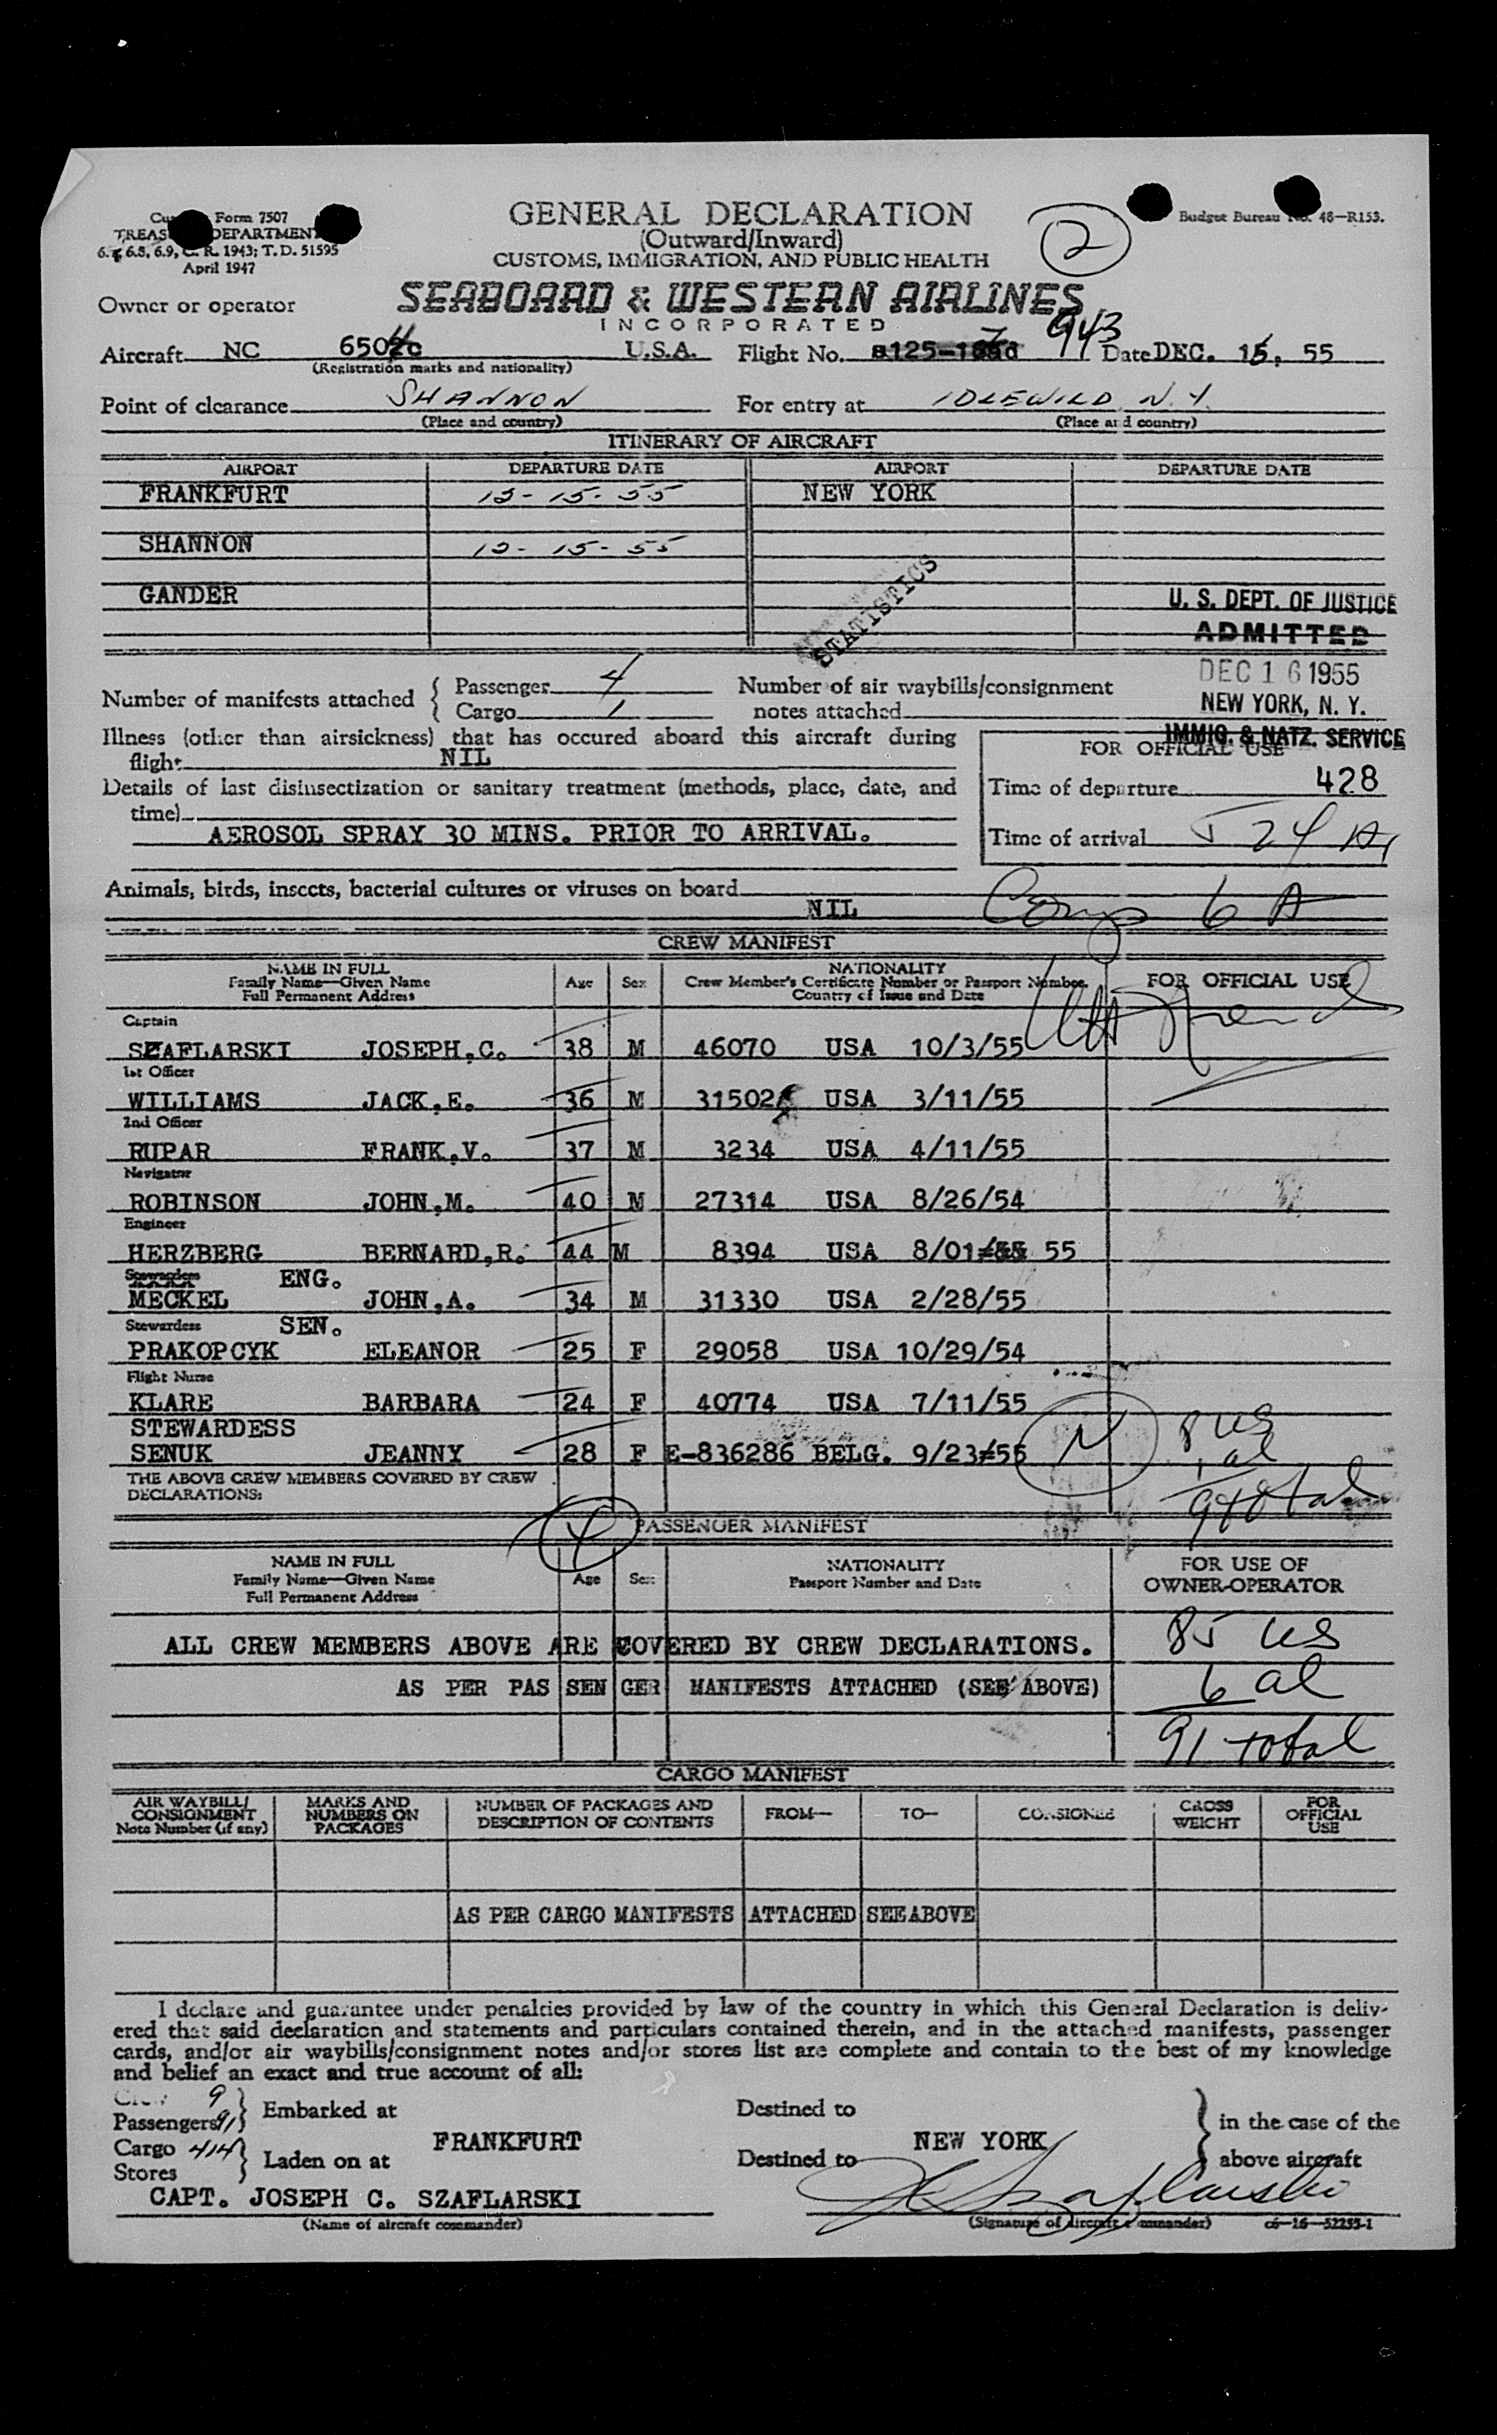 Form 7507
GENERAL DECLARATION
Budget Bureau No. 48—R153.
TREAS DEPARTMENT
(Outward/Inward)
2
6.7, 6.8, 6.9, C. R. 1943; T. D. 51595
April 1947
CUSTOMS, IMMIGRATION, AND PUBLIC HEALTH
Owner or operator SEABOARD & WESTERN AIRLINES
INCORPORATED
943
Aircraft NC 650 c U.S.A. Flight No. Date DEC. 15, 55
(Registration marks and nationality)
Point of clearance SHANNON For entry at IDLEWILD N.Y.
(Place and country) (Place and country)
ITINERARY OF AIRCRAFT
AIRPORT DEPARTURE DATE AIRPORT DEPARTURE DATE
FRANKFURT 12-15-55 NEW YORK
SHANNON 12-15-55
GANDER
STATISTICS
U. S. DEPT. OF JUSTICE
ADMITTED
DEC 16 1955
NEW YORK, N. Y.
IMMIG. & NATZ. SERVICE
Number of manifests attached { Passenger 4 Number of air waybills/consignment
Cargo 1 notes attached
Illness (other than airsickness) that has occured aboard this aircraft during
flight NIL
FOR OFFICIAL USE
Details of last disinsectization or sanitary treatment (methods, place, date, and
time)
Time of departure 428
AEROSOL SPRAY 30 MINS. PRIOR TO ARRIVAL.
Time of arrival 5 24 A
Animals, birds, insects, bacterial cultures or viruses on board
NIL
Comp 6 A
CREW MANIFEST
NAME IN FULL
Family Name—Given Name
Full Permanent Address
Age Sex
NATIONALITY
Crew Member's Certificate Number or Passport Number
Country of Issue and Date
FOR OFFICIAL USE
Captain
SZAFLARSKI JOSEPH,C. 38 M 46070 USA 10/3/55
1st Officer
WILLIAMS JACK,E. 36 M 31502 USA 3/11/55
2nd Officer
RUPAR FRANK,V. 37 M 3234 USA 4/11/55
Navigator
ROBINSON JOHN,M. 40 M 27314 USA 8/26/54
Engineer
HERZBERG BERNARD,R. 44 M 8394 USA 8/01 55
Stewardess ENG.
MECKEL JOHN,A. 34 M 31330 USA 2/28/55
Stewardess SEN.
PRAKOPCYK ELEANOR 25 F 29058 USA 10/29/54
Flight Nurse
KLARE BARBARA 24 F 40774 USA 7/11/55
STEWARDESS
SENUK JEANNY 28 F E-836286 BELG. 9/23/55 N
8 US
1 al
9 total
THE ABOVE CREW MEMBERS COVERED BY CREW
DECLARATIONS:
4
PASSENGER MANIFEST
NAME IN FULL
Family Name—Given Name
Full Permanent Address
Age Sex
NATIONALITY
Passport Number and Date
FOR USE OF
OWNER-OPERATOR
ALL CREW MEMBERS ABOVE ARE COVERED BY CREW DECLARATIONS. 85 US
AS PER PASSENGER MANIFESTS ATTACHED (SEE ABOVE) 6 al
91 total
CARGO MANIFEST
AIR WAYBILL/
CONSIGNMENT
Note Number (if any)
MARKS AND
NUMBERS ON
PACKAGES
NUMBER OF PACKAGES AND
DESCRIPTION OF CONTENTS
FROM—
TO—
CONSIGNEE
GROSS
WEIGHT
FOR
OFFICIAL
USE
AS PER CARGO MANIFESTS ATTACHED SEE ABOVE
I declare and guarantee under penalties provided by law of the country in which this General Declaration is deliv-
ered that said declaration and statements and particulars contained therein, and in the attached manifests, passenger
cards, and/or air waybills/consignment notes and/or stores list are complete and contain to the best of my knowledge
and belief an exact and true account of all:
Crew 9
Passengers 91 } Embarked at Destined to } in the case of the
FRANKFURT NEW YORK
Cargo 414
Stores } Laden on at Destined to above aircraft
CAPT. JOSEPH C. SZAFLARSKI J C Szaflarski
(Name of aircraft commander) (Signature of aircraft commander) c6—16—52255-1